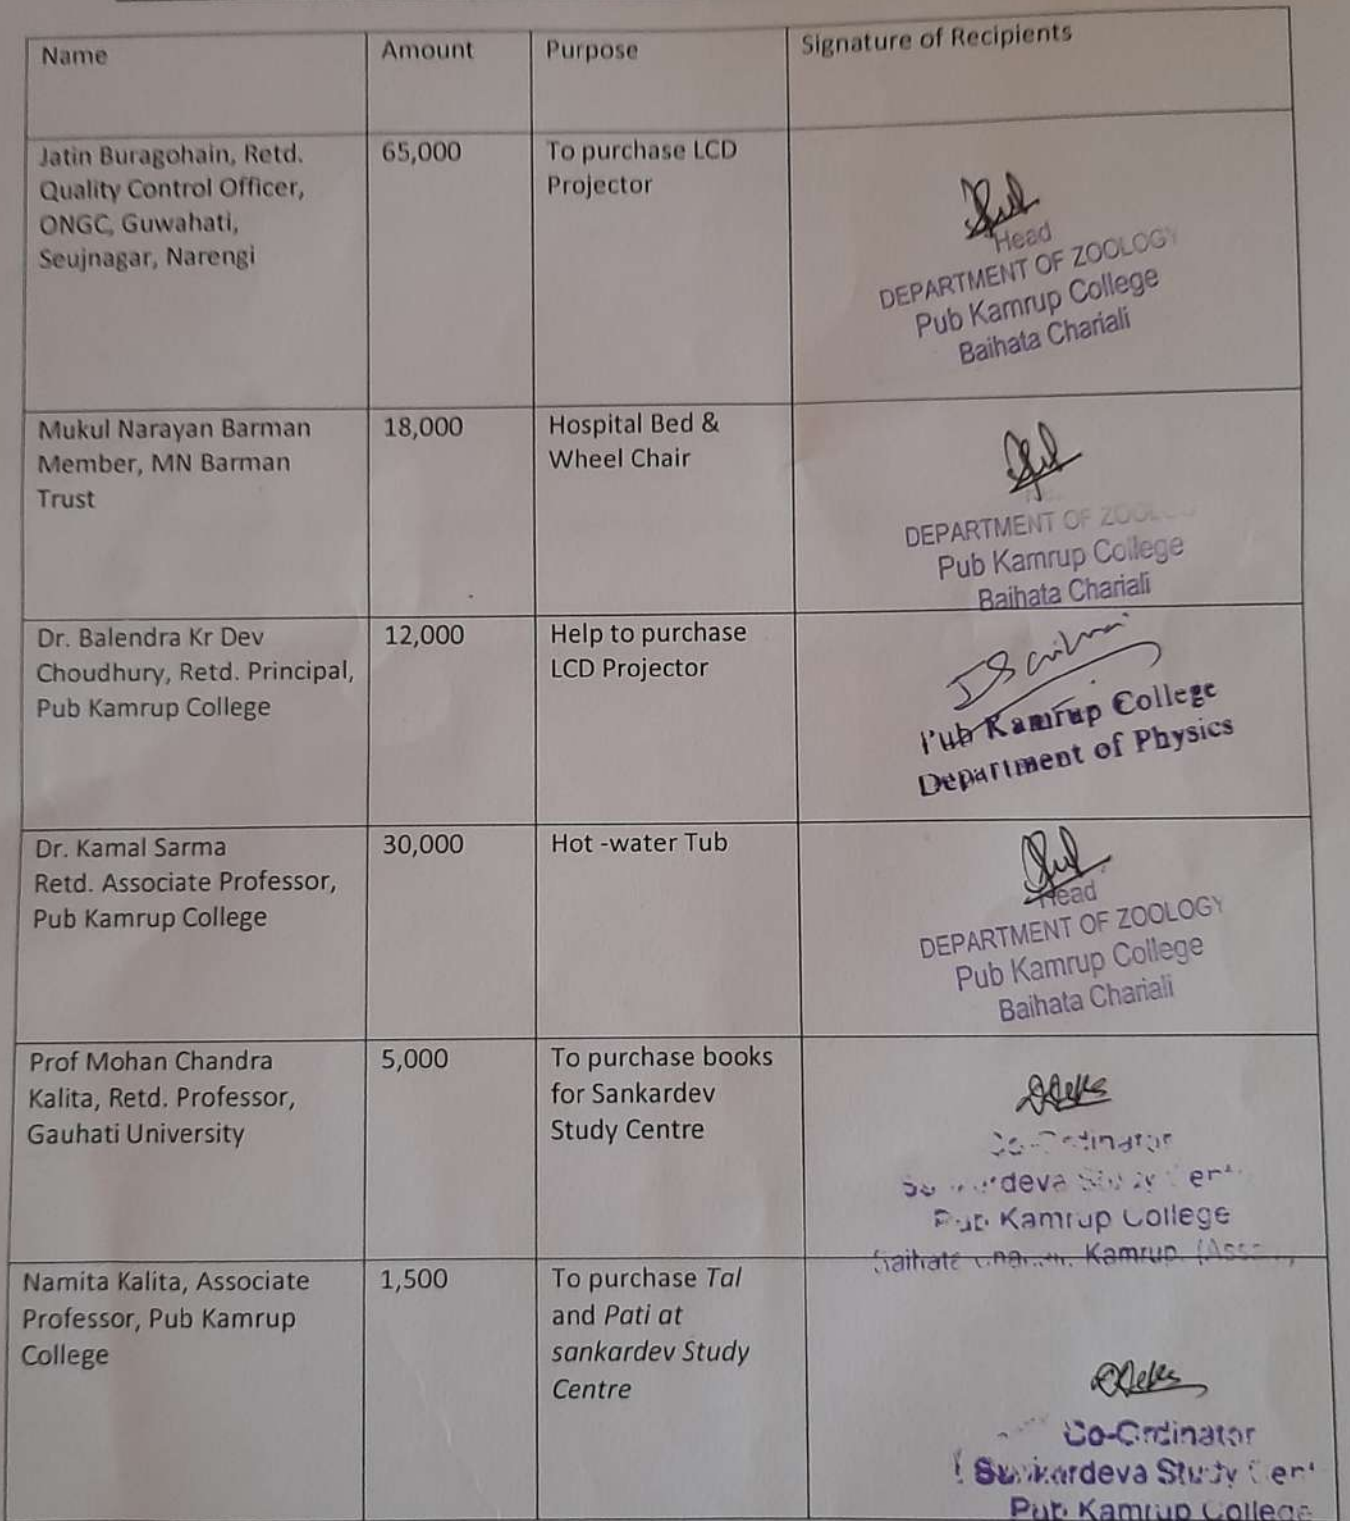 Name
Amount
Purpose
Signature of Recipients
Jatin Buragohain, Retd.
Quality Control Officer,
ONGC, Guwahati,
Seujnagar, Narengi
65,000
To purchase LCD
Projector
Head
DEPARTMENT OF ZOOLOGY
Pub Kamrup College
Baihata Chariali
Mukul Narayan Barman
Member, MN Barman
Trust
18,000
Hospital Bed &
Wheel Chair
DEPARTMENT OF
Pub Kamrup College
Baihata Chariali
Dr. Balendra Kr Dev
Choudhury, Retd. Principal,
Pub Kamrup College
12,000
Help to purchase
LCD Projector
Pub Kamrup College
Department of Physics
Dr. Kamal Sarma
Retd. Associate Professor,
Pub Kamrup College
30,000
Hot -water Tub
Head
DEPARTMENT OF ZOOLOGY
Pub Kamrup College
Baihata Chariali
Prof Mohan Chandra
Kalita, Retd. Professor,
Gauhati University
5,000
To purchase books
for Sankardev
Study Centre
Co-Ordinator
Study
Pub Kamrup College
Kamrup
Namita Kalita, Associate
Professor, Pub Kamrup
College
1,500
To purchase Tal
and Pati at
sankardev Study
Centre
Co-Ordinator
Sankardeva Study
Pub Kamrup College